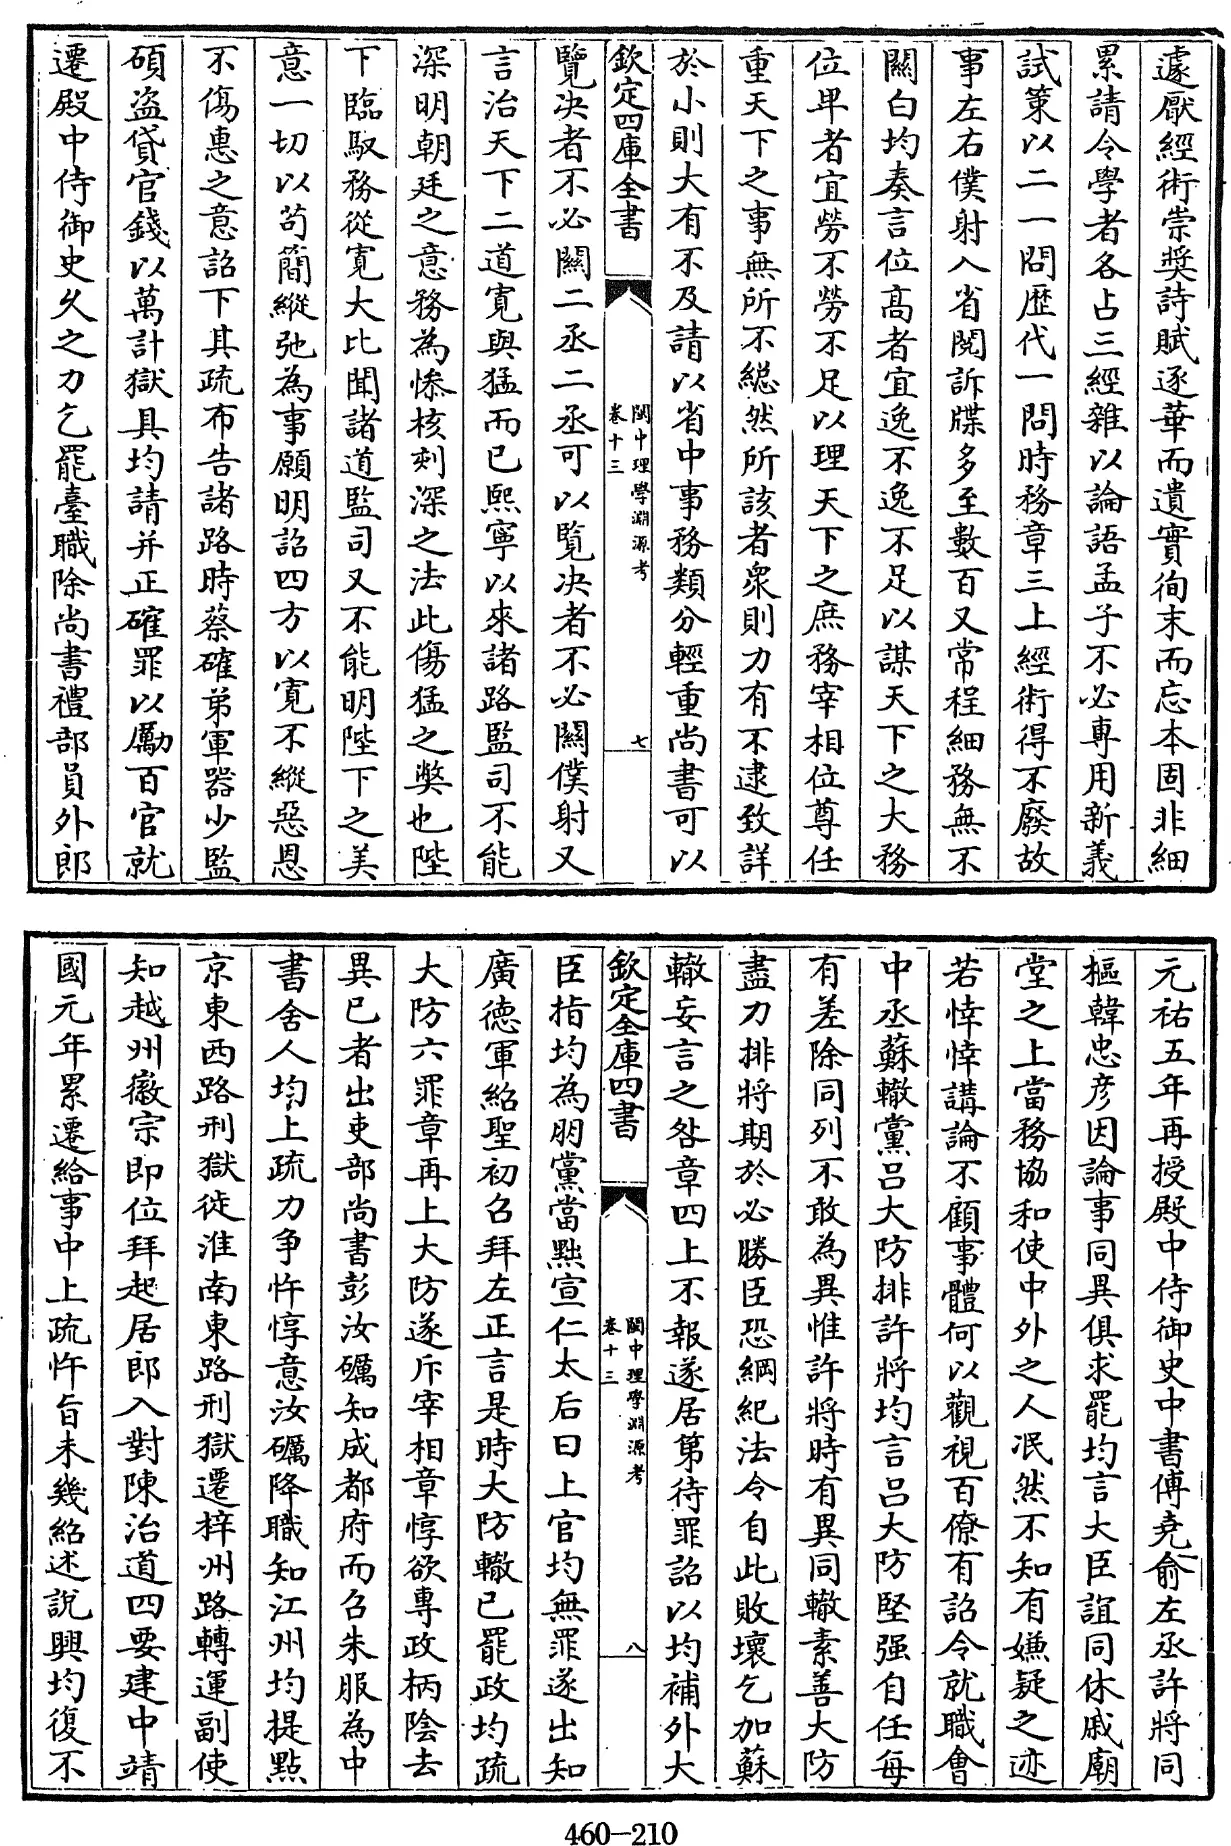 遽厭經術崇奬詩賦逐華而遺實徇末而忘本固非細
累請令學者各占三經雜以論語孟子不必專用新義
試策以二一問歷代一問時務章三上經術得不廢故
事左右僕射入省閱訴牒多至數百又常程細務無不
關白均奏言位高者宜逸不逸不足以謀天下之大務
位卑者宜勞不勞不足以理天下之庶務宰相位尊任
重天下之事無所不總然所該者衆則力有不逮致詳
於小則大有不及請以省中事務類分輕重尚書可以
欽定四庫全書
閩中理學淵源考
卷十三
七
覽决者不必關二丞二丞可以覽决者不必關僕射又
言治天下二道寛與猛而已熙寧以來諸路監司不能
深明朝廷之意務為慘核刻深之法此傷猛之獘也陛
下臨馭務從寛大比聞諸道監司又不能明陛下之美
意一切以苟簡縱弛為事願明詔四方以寛不縱惡恩
不傷惠之意詔下其疏布告諸路時蔡確弟軍器少監
碩盗貸官錢以萬計獄具均請并正確罪以勵百官就
遷殿中侍御史久之力乞罷臺職除尚書禮部員外郎
元祐五年再授殿中侍御史中書傅堯俞左丞許將同
樞韓忠彦因論事同異俱求罷均言大臣誼同休戚廟
堂之上當務協和使中外之人泯然不知有嫌疑之迹
若悻悻講論不顧事體何以觀視百僚有詔令就職會
中丞蘇轍黨吕大防排許將均言吕大防堅强自任每
有差除同列不敢為異惟許將時有異同轍素善大防
盡力排將期於必勝臣恐綱紀法令自此敗壞乞加蘇
轍妄言之咎章四上不報遂居第待罪詔以均補外大
欽定全庫四書
閩中理學淵源考
卷十三
八
臣指均為朋黨當黜宣仁太后曰上官均無罪遂出知
廣德軍紹聖初召拜左正言是時大防轍已罷政均疏
大防六罪章再上大防遂斥宰相章惇欲專政柄陰去
異已者出吏部尚書彭汝礪知成都府而召朱服為中
書舍人均上疏力争忤惇意汝礪降職知江州均提點
京東西路刑獄徙淮南東路刑獄遷梓州路轉運副使
知越州徽宗即位拜起居郎入對陳治道四要建中靖
國元年累遷給事中上疏忤旨未幾紹述說興均復不
460-210